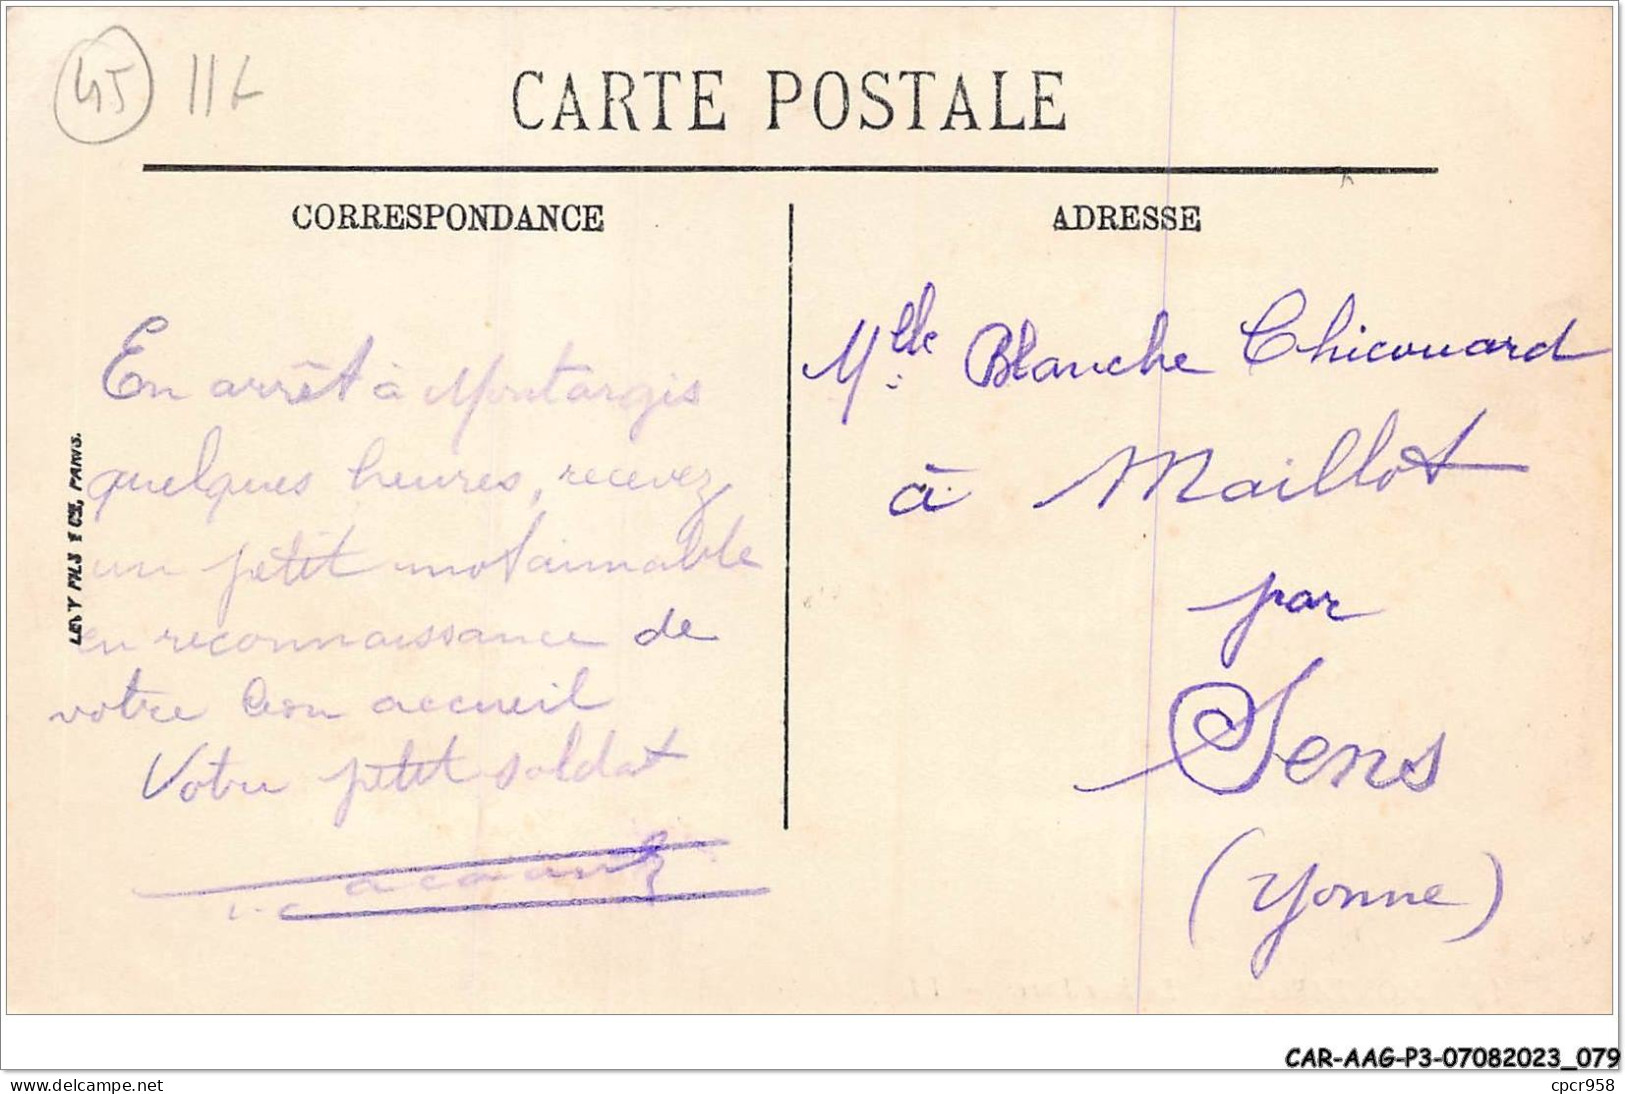 45
CARTE POSTALE
CORRESPONDANCE
ADRESSE
En arrêt à Montargis
quelques heures, recevez
un petit mot aimable
en reconnaissance de
votre bon accueil
Votre petit soldat
LEVY FILS & CIE, PARIS.
Mlle Blanche Chicouard
à Maillot
par
Sens
(Yonne)
CAR-AAG-P3-07082023_079
www.delcampe.net
cpcr958